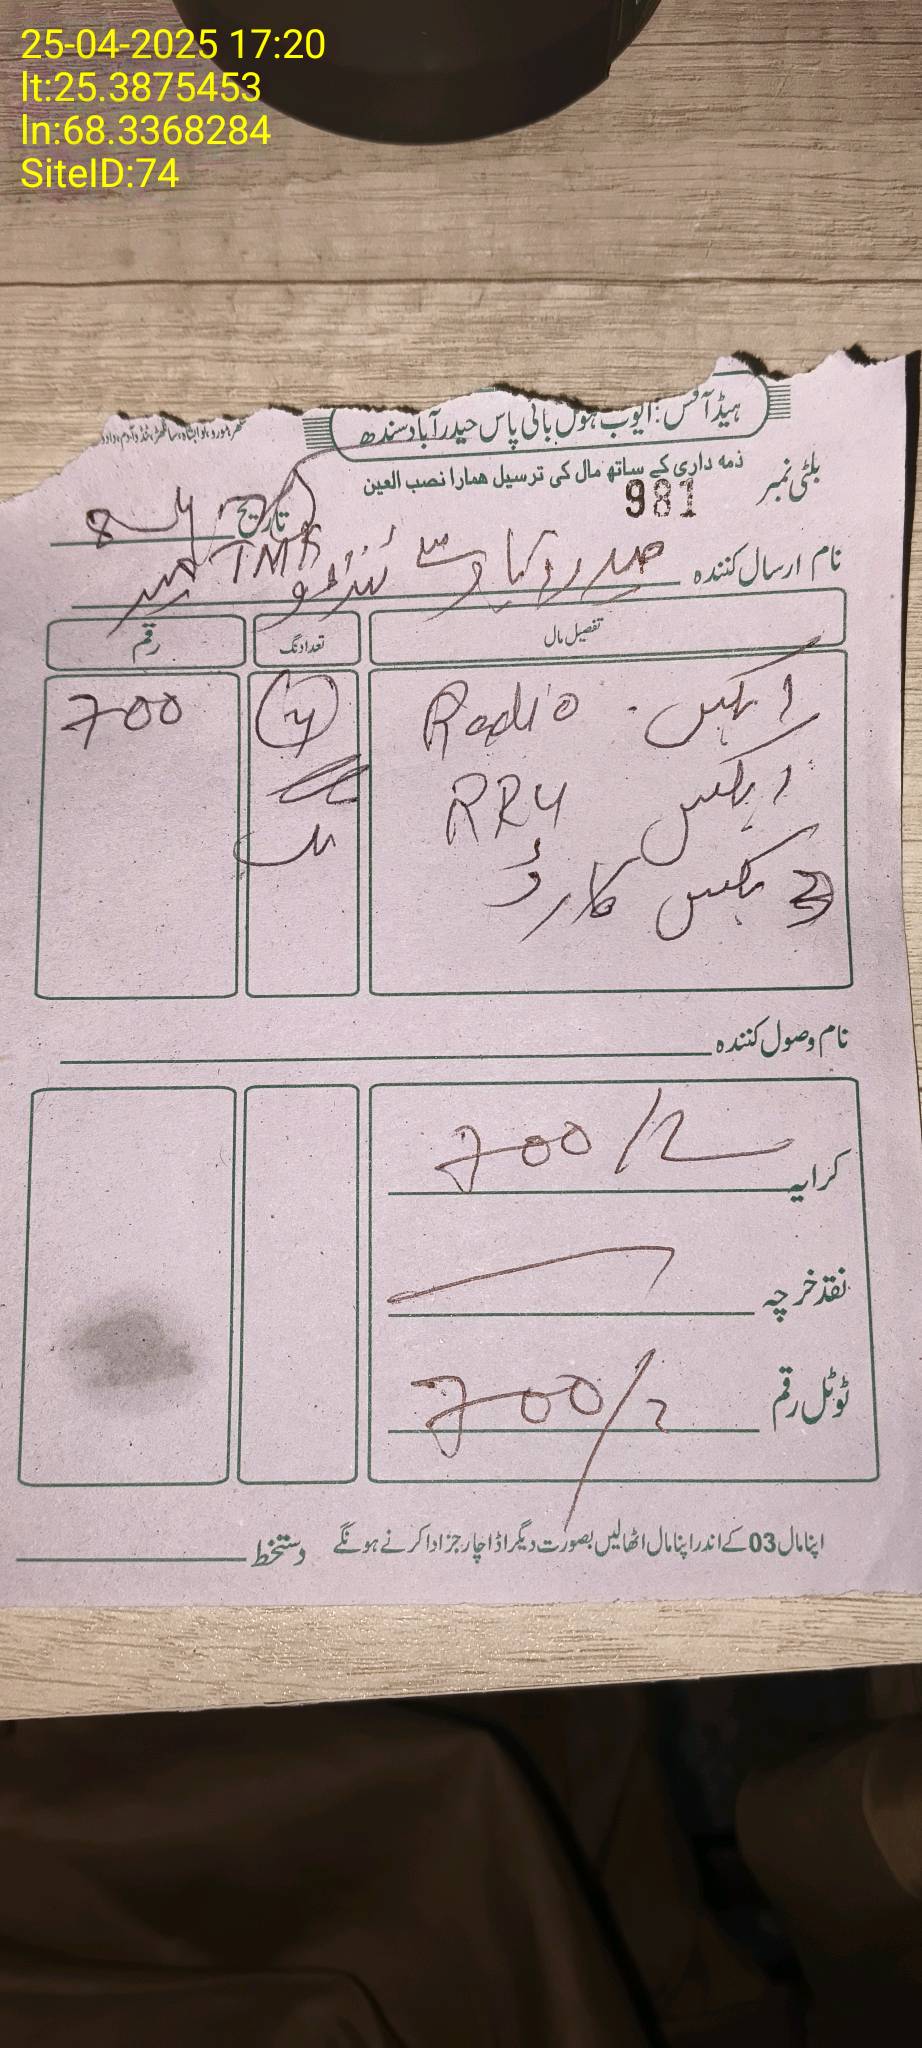 25-04-2025 17:20
lt:25.3875453
ln:68.3368284
SiteID:74
ہیڈ آفس: ایوب ہوٹل بائی پاس حیدرآباد سندھ
ذمہ داری کے ساتھ مال کی ترسیل ہمارا نصب العین
بلٹی نمبر 981 تاریخ
نام ارسال کنندہ حیدرآباد سے ٹنڈو TMK
تفصیل مال تعداد نگ رقم
1 بکس Radio 700
1 بکس RRU
2 بکس کارڈ
نام وصول کنندہ
کرایہ 700/
نقد خرچہ
ٹوٹل رقم 700/
اپنا مال 03 کے اندر اپنا مال اٹھالیں بصورت دیگر اڈا چارجز ادا کرنے ہونگے دستخط